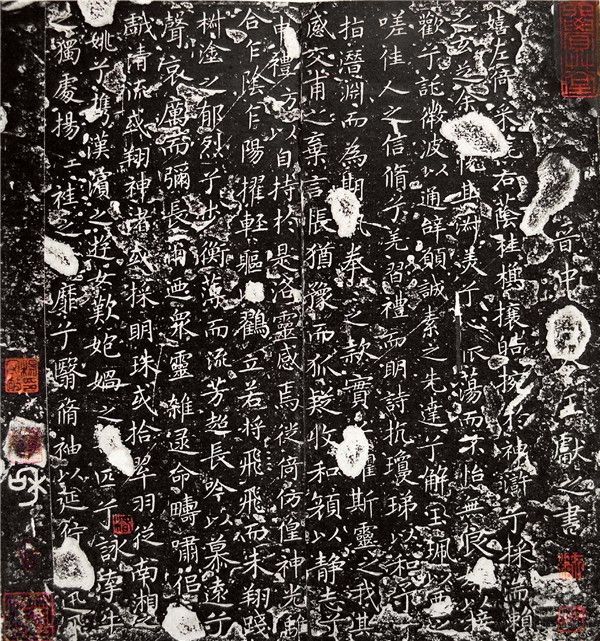 晉中令王獻之書
嬉左倚采旄右蔭桂旗攘皓捥於神滸兮採湍瀨
之玄芝余悅其淑美兮心振蕩而不怡無良以接
歡兮託微波以通辭願誠素之先達兮解玉珮以要之
嗟佳人之信脩兮羌習禮而明詩抗瓊珶以和予兮
指潛淵而為期執拳之款實兮懼斯靈之我其
感交甫之棄言悵猶豫而狐疑收和顏以靜志兮
申禮防以自持於是洛靈感焉徙倚仿偟神光離
合乍陰乍陽擢輕軀鶴立若將飛飛而未翔踐
椒塗之郁烈兮步衡薄而流芳超長吟以慕遠兮
聲哀厲而彌長爾迺眾靈雜遝命疇嘯侶
戲清流或翔神渚或採明珠或拾翠羽從南湘之
姚兮攜漢濱之游女歎匏媧之匹兮詠牽牛
獨處揚袿之靡兮翳脩袖以延佇迅飛